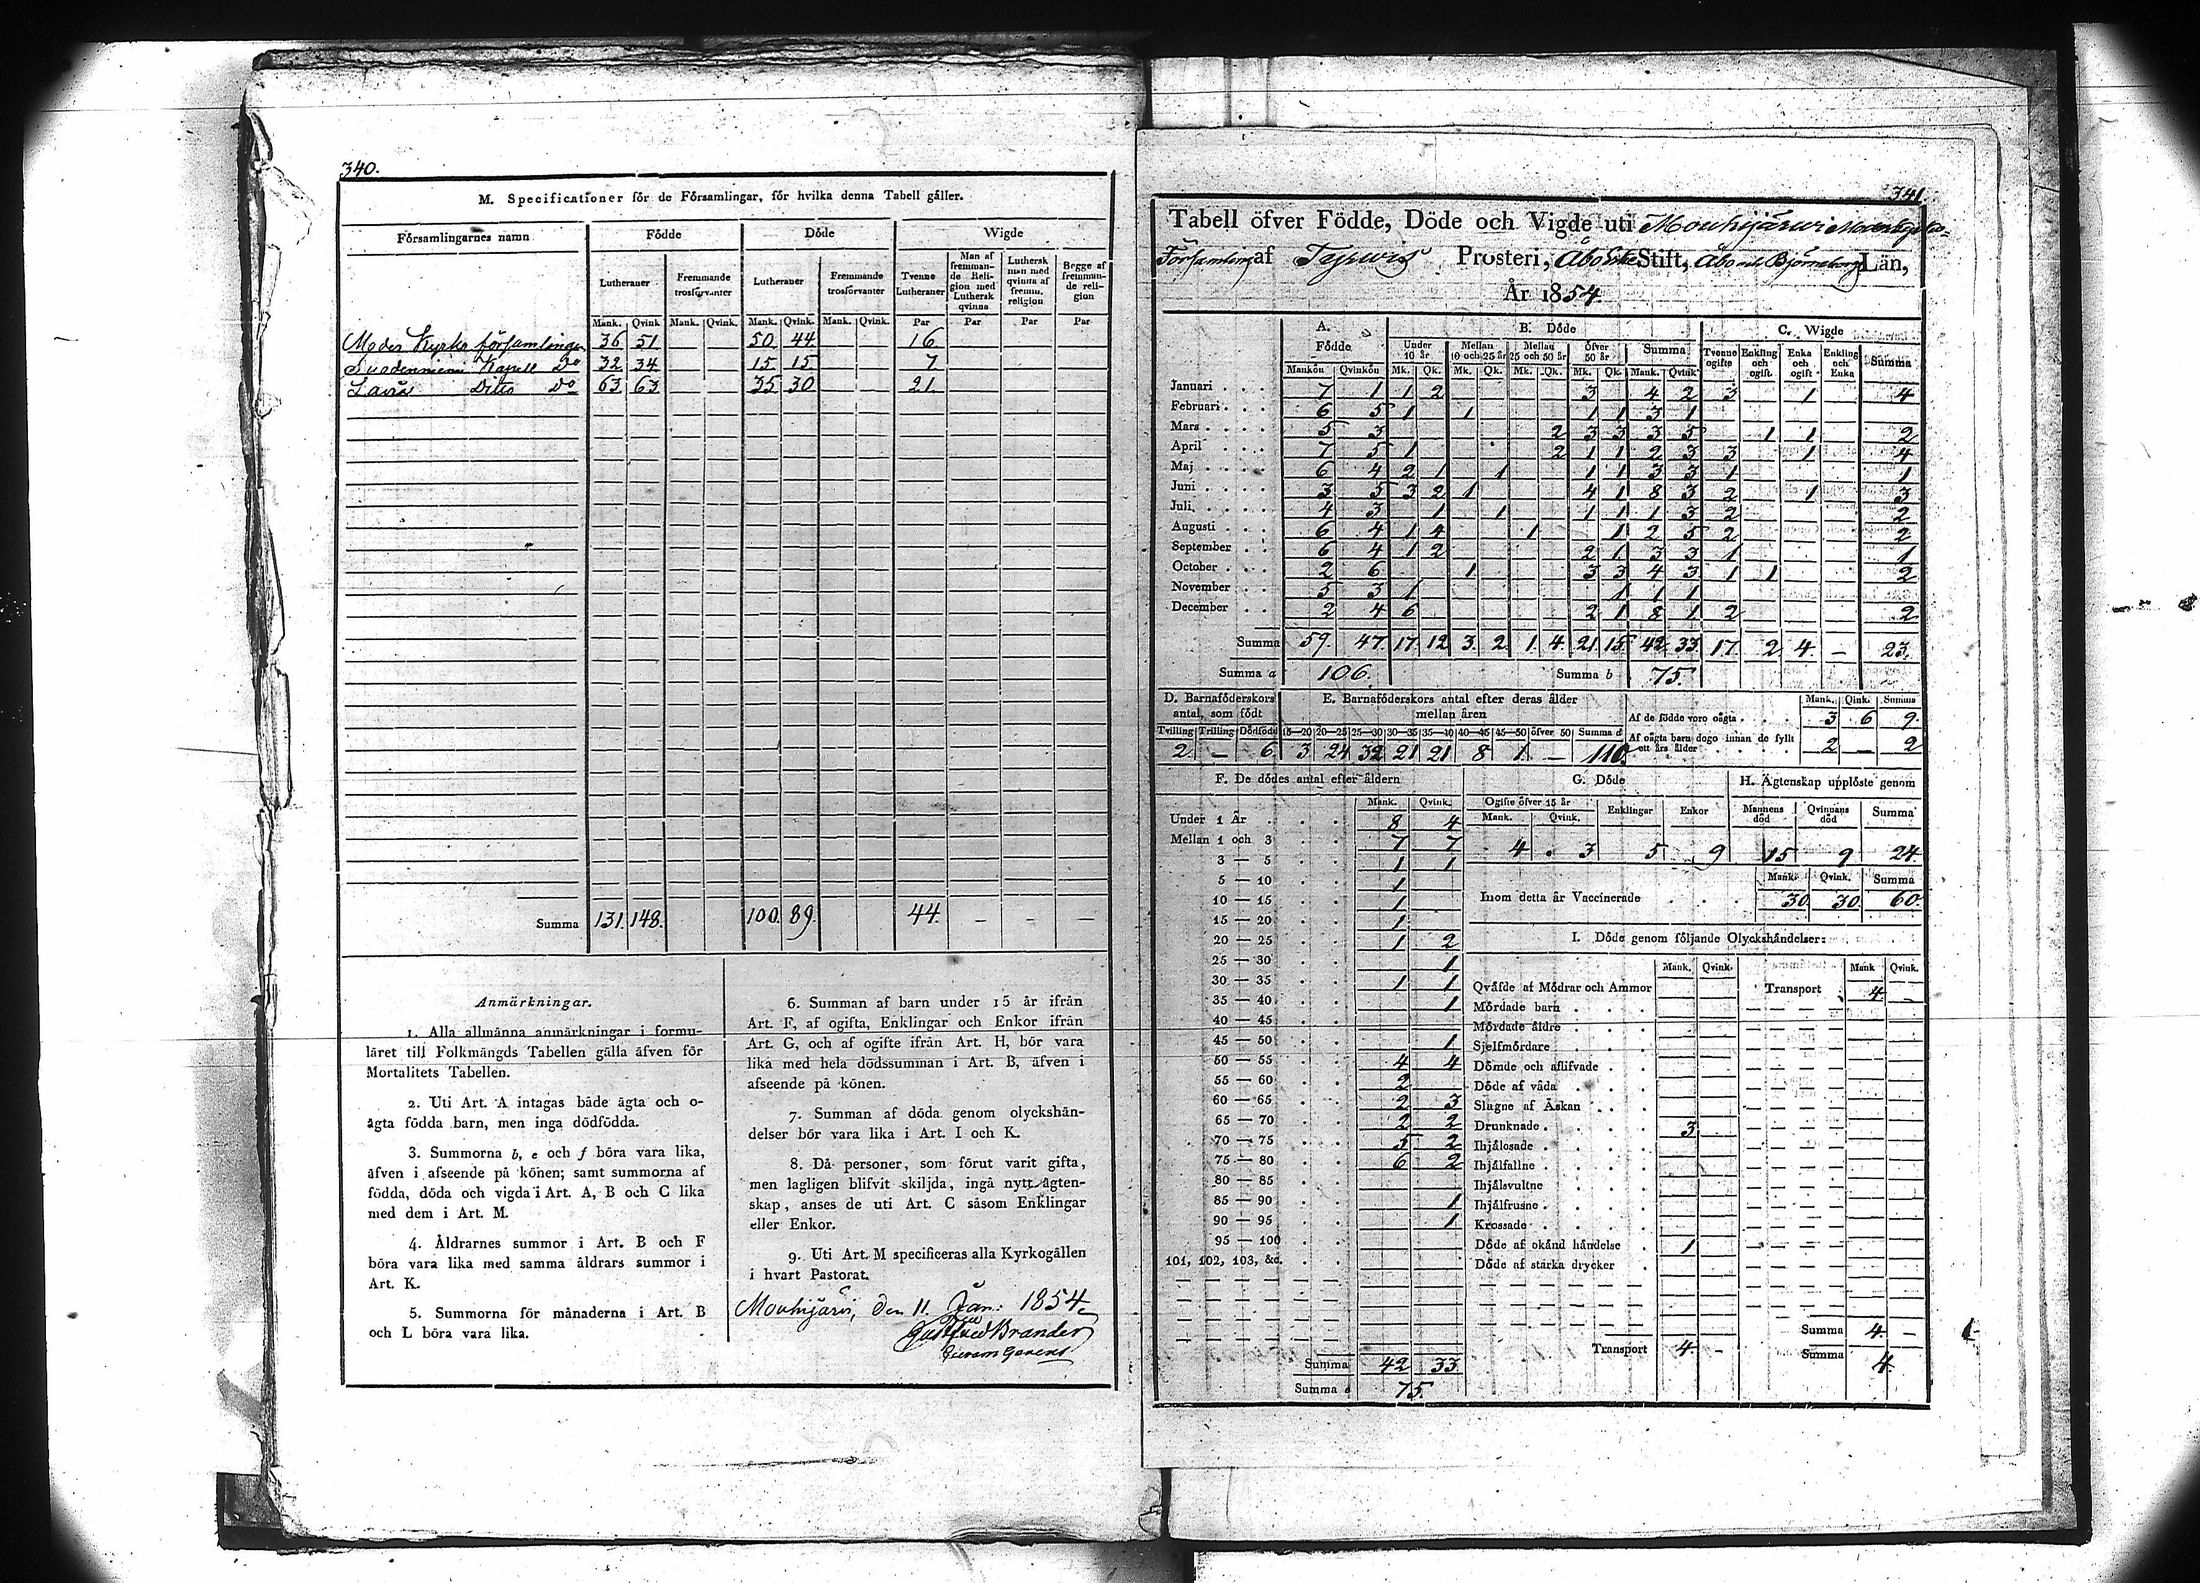 340.
M. Specificationer för de Församlingar, för hvilka denna Tabell gäller.
Församlingarnes namn Födde Döde Wigde
Lutheraner Fremmande trosförvanter Lutheraner Fremmande trosförvanter Tvenne Lutheraner Man af fremmande Religion med Luthersk qvinna Luthersk man med qvinna af fremm. religion Begge af fremmande religion
Mank. Qvink. Mank. Qvink. Mank. Qvink. Mank. Qvink. Par Par Par Par
Moder Kyrko församlingen 36 51 50 44 16
Suodenniemi Kapell Do 32 34 15 15 7
Lavia Ditto Do 63 63 35 30 21
Summa 131. 148. 100. 89. 44. — — —
Anmärkningar.
1. Alla allmänna anmärkningar i formu-
läret till Folkmängds Tabellen gälla äfven för
Mortalitets Tabellen.
2. Uti Art. A intagas både ägta och o-
ägta födda barn, men inga dödfödda.
3. Summorna b, e och f böra vara lika,
äfven i afseende på könen; samt summorna af
födda, döda och vigda i Art. A, B och C lika
med dem i Art. M.
4. Åldrarnes summor i Art. B och F
böra vara lika med samma åldrars summor i
Art. K.
5. Summorna för månaderna i Art. B
och L böra vara lika.
6. Summan af barn under 15 år ifrån
Art. F, af ogifta, Enklingar och Enkor ifrån
Art. G, och af ogifte ifrån Art. H, bör vara
lika med hela dödssumman i Art. B, äfven i
afseende på könen.
7. Summan af döda genom olyckshän-
delser bör vara lika i Art. I och K.
8. Då personer, som förut varit gifta,
men lagligen blifvit skiljda, ingå nytt ägten-
skap, anses de uti Art. C såsom Enklingar
eller Enkor.
9. Uti Art. M specificeras alla Kyrkogällen
i hvart Pastorat.
Mouhijärvi, den 11. Jan: 1854.
Gustaf Brander
341.
Tabell öfver Födde, Döde och Vigde uti Mouhijärvi Moderkyrko-
Församling af Tyrwis Prosteri, Åbo Stift, Åbo och Björneborgs Län,
År 1854.
A. Födde B. Döde C. Wigde
Under 10 år Mellan 10 och 25 år Mellan 25 och 50 år Öfver 50 år Summa Tvenne ogifte Enkling och ogift Enka och ogift Enkling och Enka Summa
Mankön Qvinkön Mk. Qk. Mk. Qk. Mk. Qk. Mk. Qk. Mank. Qvink.
Januari 7 1 1 2 3 4 2 3 1 4
Februari 6 5 1 1 1 1 3 1
Mars 5 3 2 3 3 3 5 1 1 2
April 7 5 1 2 1 1 2 3 3 1 4
Maj 6 4 2 1 1 1 1 3 3 1 1
Juni 3 5 3 2 1 4 1 8 3 2 1 3
Juli 4 3 1 1 1 1 1 3 2 2
Augusti 6 4 1 4 1 1 2 5 2 2
September 6 4 1 2 2 1 3 3 1 1
October 2 6 1 3 3 4 3 1 1 2
November 5 3 1 1 1 1
December 2 4 6 2 1 8 1 2 2
Summa 59. 47. 17. 12. 3. 2. 1. 4. 21. 15. 42. 33. 17. 2. 4. — 23.
Summa a 106. Summa b 75.
D. Barnaföderskors antal, som födt
Tvilling Trilling Dödfödd
2. — 6.
E. Barnaföderskors antal efter deras ålder mellan åren
15—20 20—25 25—30 30—35 35—40 40—45 45—50 öfver 50 Summa d
3 24 32 21 21 8 1 — 110.
Mank. Qink. Summa
Af de födde voro oägta 3 6 9.
Af oägta barn dogo innan de fyllt ett års ålder 2 — 2
F. De dödes antal efter åldern
Mank. Qvink.
Under 1 År 8 4
Mellan 1 och 3 7 7
3 — 5 1 1
5 — 10 1
10 — 15 1
15 — 20 1
20 — 25 1 2
25 — 30 1
30 — 35 1 1
35 — 40 1
40 — 45
45 — 50 1
50 — 55 4 4
55 — 60 2
60 — 65 2 3
65 — 70 2 2
70 — 75 5 2
75 — 80 6 2
80 — 85
85 — 90 1
90 — 95 1
95 — 100
101, 102, 103, &c.
Summa 42 33
75.
G. Döde
Ogifte öfver 15 år Enklingar Enkor
Mank. Qvink.
4 3 5 9
H. Ägtenskap upplöste genom
Mannens död Qvinnans död Summa
15 9 24.
Mank. Qvink. Summa
Inom detta år Vaccinerade 30. 30. 60.
I. Döde genom följande Olyckshändelser:
Mank. Qvink. Mank Qvink.
Qväfde af Mödrar och Ammor Transport 4 —
Mördade barn
Mördade äldre
Sjelfmördare
Dömde och aflifvade
Döde af våda
Slagne af Åskan
Drunknade 3
Ihjälosade
Ihjälfallne
Ihjälsvultne
Ihjälfrusne
Krossade
Döde af okänd händelse 1
Döde af starka drycker
Summa 4. —
Transport 4. —
Summa 4.